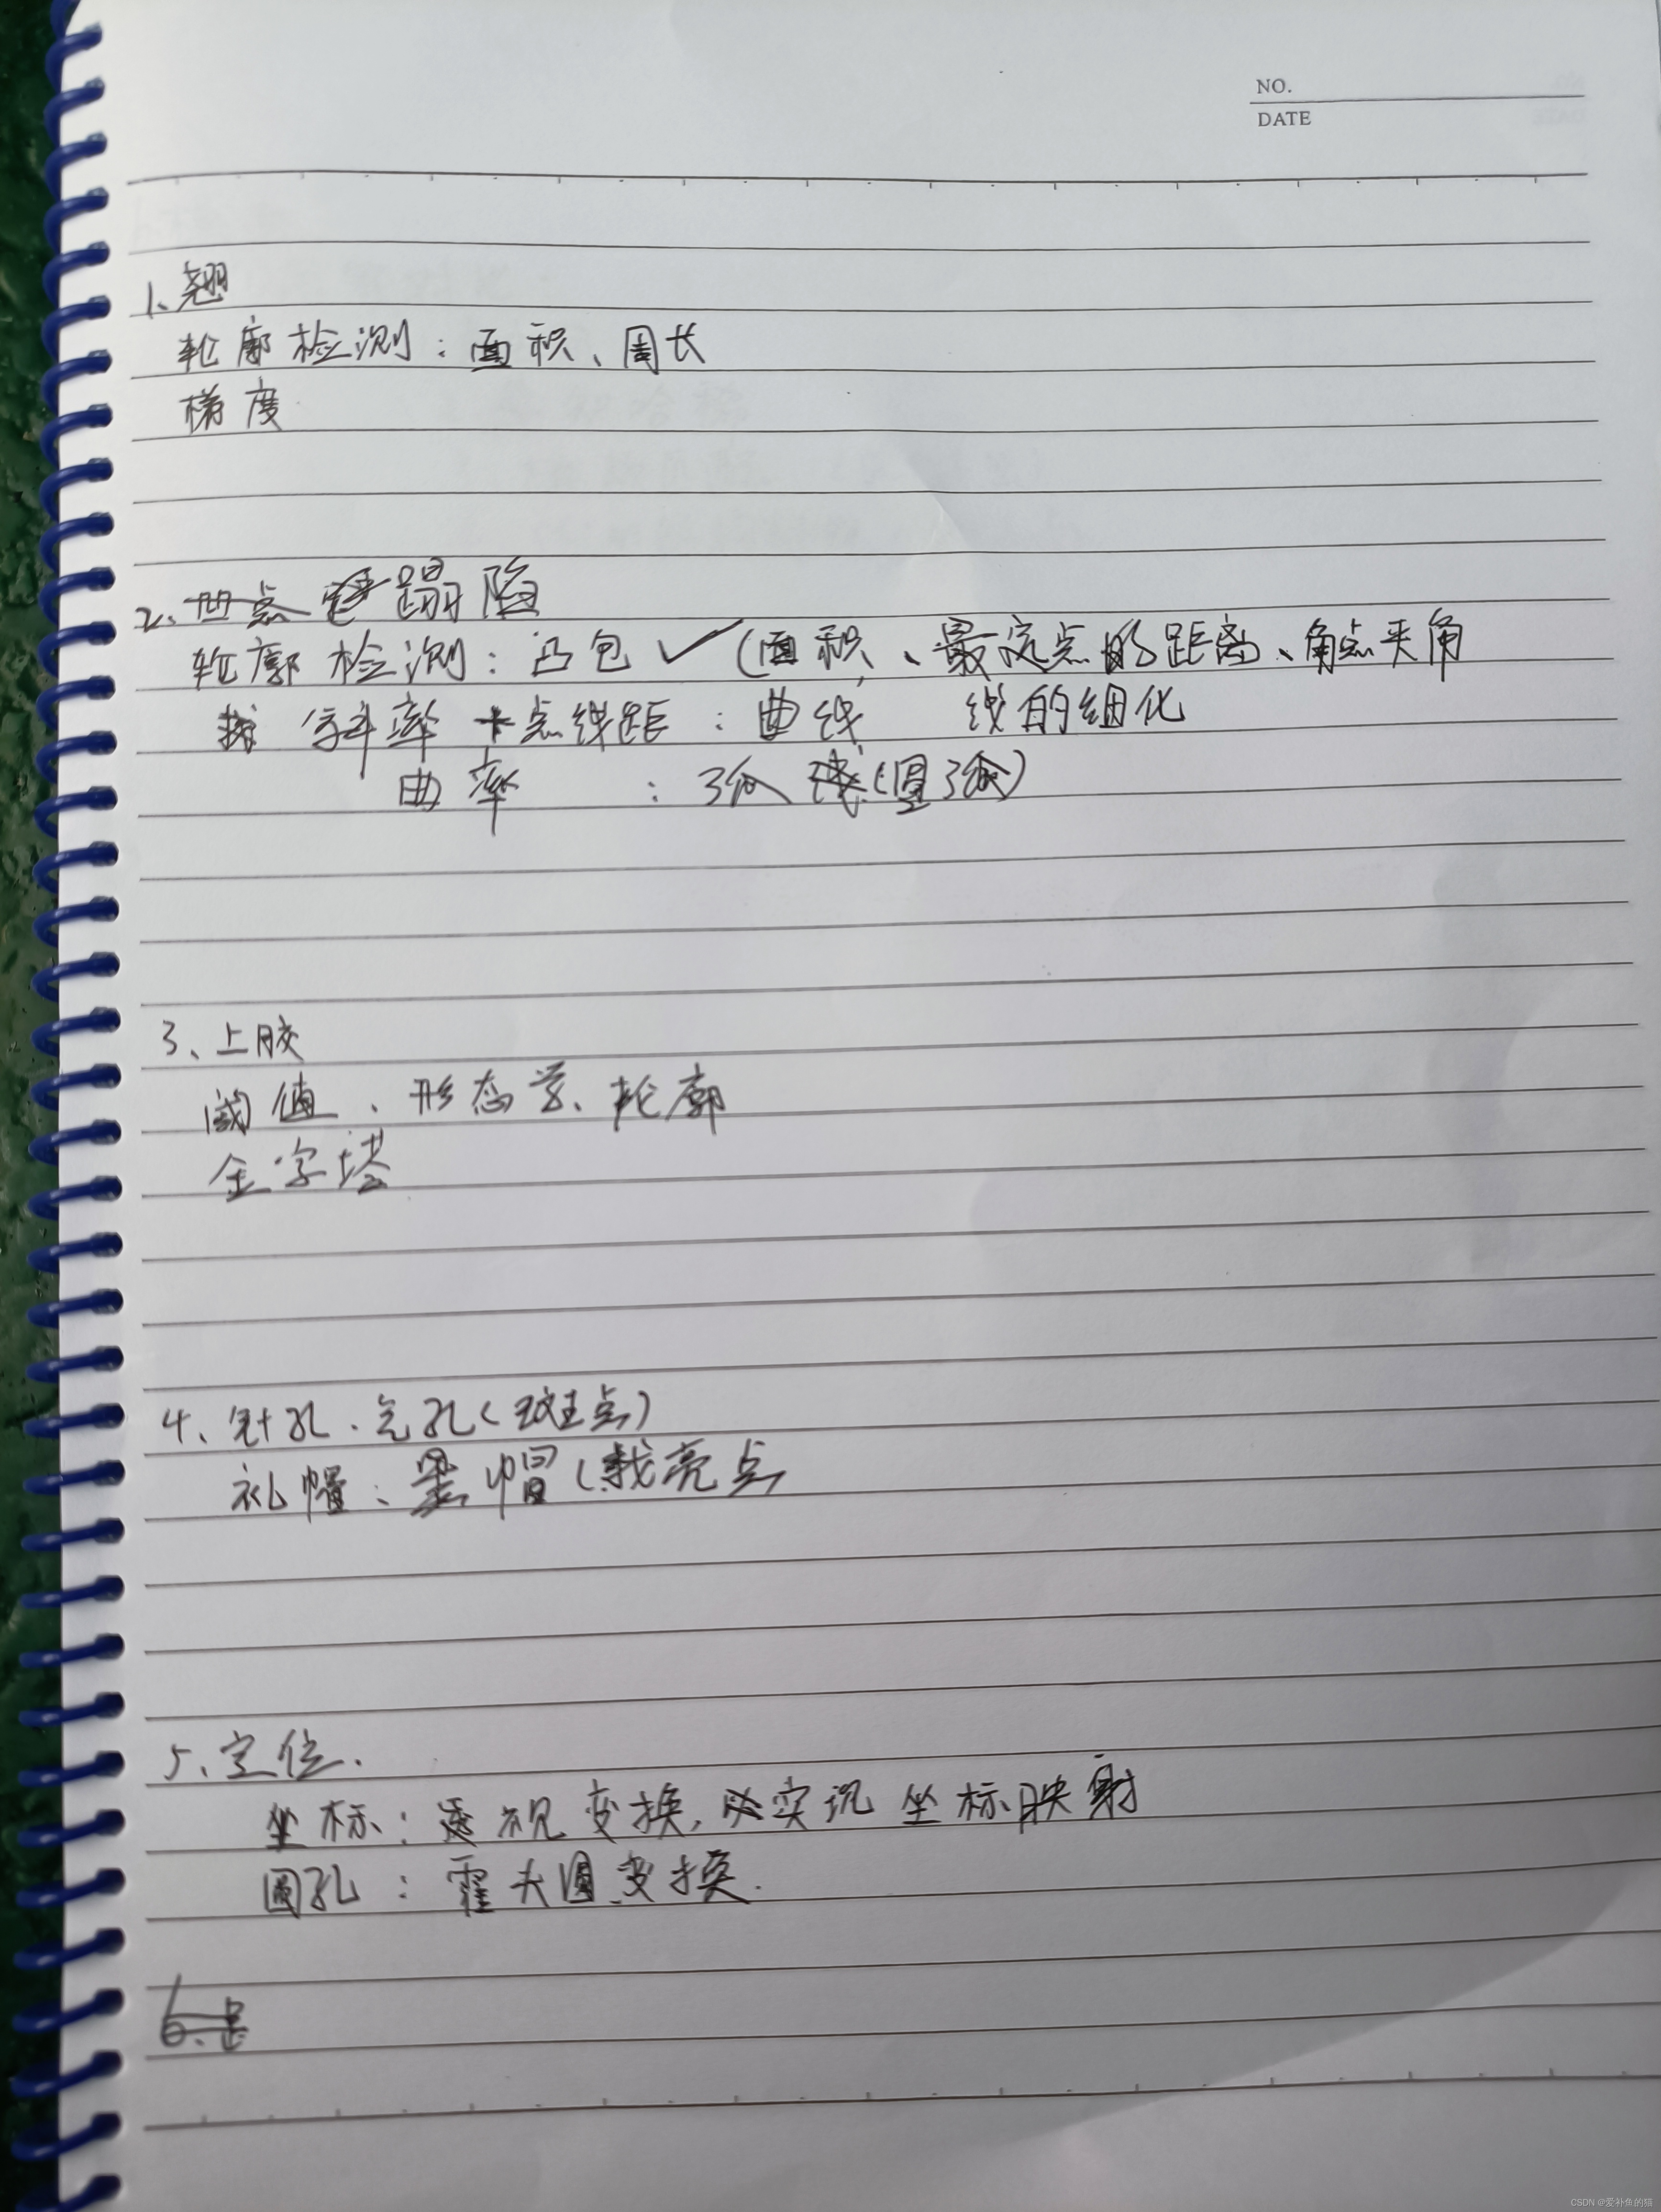 NO.
DATE
1、翘
轮廓检测：面积、周长
梯度
2、凹点 蹋陷
轮廓检测：凸包 ✓ (面积、最远点的距离、角点夹角
斜率 + 点线距：曲线 线的细化
曲率 ：弧线(圆弧)
3、上胶
阈值、形态学、轮廓
金字塔
4、针孔、气孔(斑点)
礼帽、黑帽(找亮点
5、定位.
坐标：透视变换，实现坐标映射
圆孔：霍夫圆变换.
6.
CSDN @爱补鱼的猫